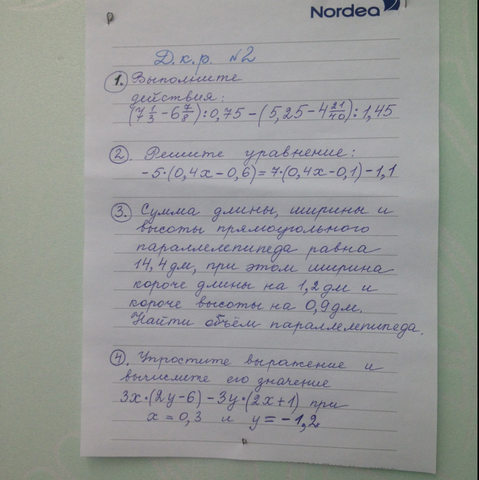 Nordea
Д.к.р. №2
1. Выполните
действия:
(7 1/3 - 6 7/8) : 0,75 - (5,25 - 4 21/40) : 1,45
2. Решите уравнение:
-5·(0,4x - 0,6) = 7·(0,4x - 0,1) - 1,1
3. Сумма длины, ширины и
высоты прямоугольного
параллелепипеда равна
14,4 дм, при этом ширина
короче длины на 1,2 дм и
короче высоты на 0,9 дм.
Найти объём параллелепипеда.
4. Упростите выражение и
вычислите его значение
3x·(2y-6) - 3y·(2x+1) при
x = 0,3 и y = -1,2